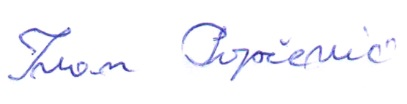 Ivan Popčević